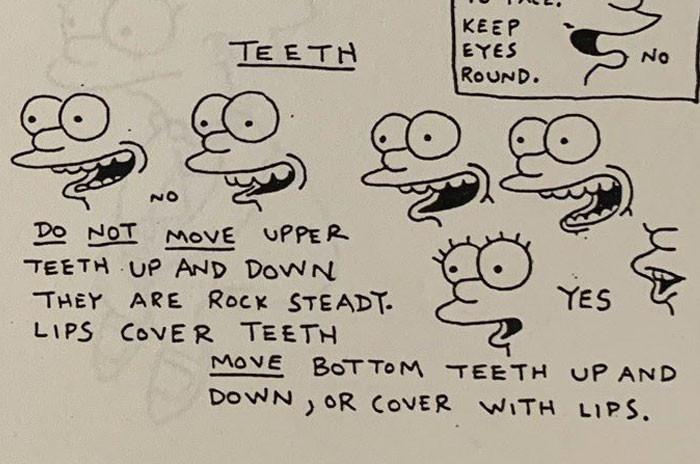 KEEP
EYES
ROUND.
NO
TEETH
NO
DO NOT MOVE UPPER
TEETH UP AND DOWN
THEY ARE ROCK STEADY.
LIPS COVER TEETH
YES
MOVE BOTTOM TEETH UP AND
DOWN, OR COVER WITH LIPS.